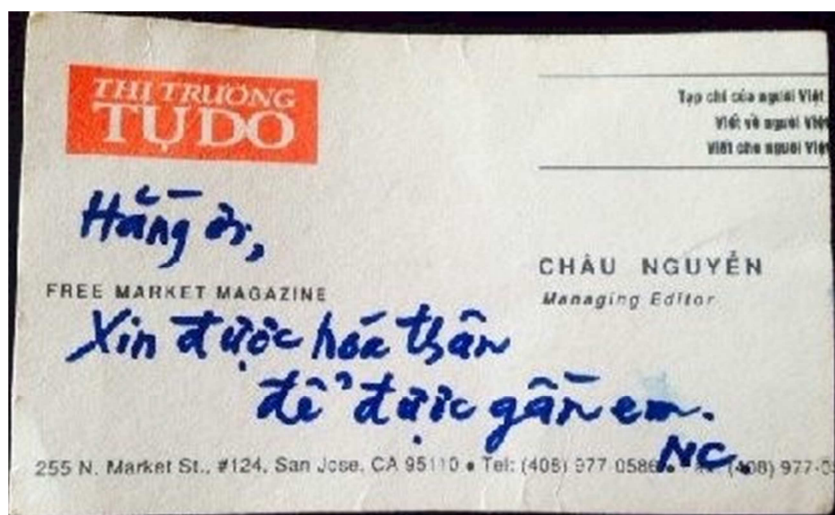 THỊ TRƯỜNG
TỰ DO
Tạp chí của người Việt
Viết về người Việt
Viết cho người Việt
Hằng ơi,
CHÂU NGUYỄN
FREE MARKET MAGAZINE
Managing Editor
Xin được hóa thân
để được gần em.
NC.
255 N. Market St., #124, San Jose, CA 95110 • Tel: (408) 977-0586 • (408) 977-